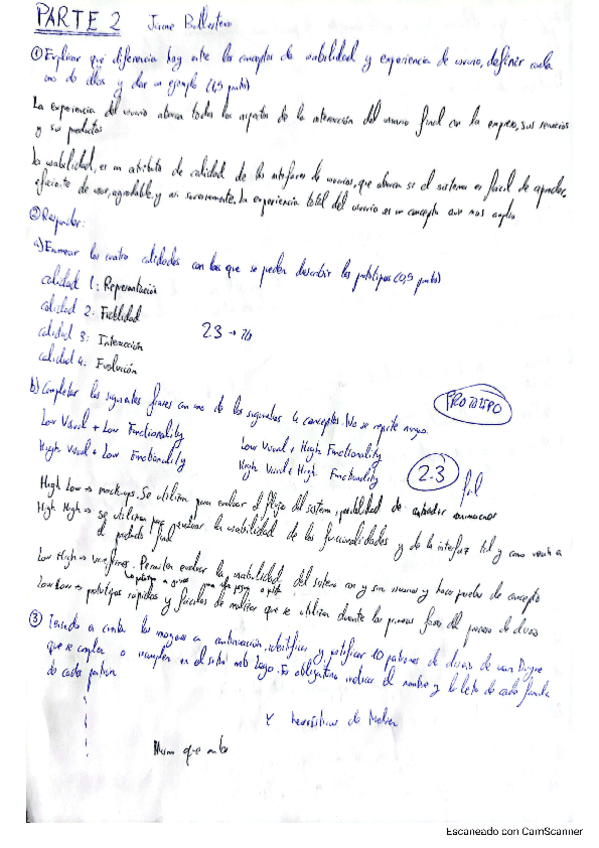 PARTE 2 Jaime Ballesteros
① Explicar qué diferencia hay entre los conceptos de usabilidad y experiencia de usuario, definir cada
uno de ellos y dar un ejemplo (1,5 punto)
La experiencia del usuario abarca todos los aspectos de la interacción del usuario final con la empresa, sus servicios
y sus productos
La usabilidad, es un atributo de calidad de las interfaces de usuarios, que abarca si el sistema es fácil de aprender,
eficiente de usar, agradable, y así sucesivamente. La experiencia total del usuario es un concepto aun mas amplio
② Responder:
a) Enumerar las cuatro calidades con las que se pueden describir los prototipos (0,5 punto)
calidad 1: Representación
calidad 2: Fidelidad
calidad 3: Interacción
calidad 4: Evolución
23 →
b) Completar las siguientes frases con uno de los siguientes 4 conceptos. No se repite ninguno.
PROTOTIPO
Low Visual + Low Functionality Low Visual + High Functionality
High Visual + Low Functionality High Visual + High Functionality
2.3
High Low → mockups. Se utilizan para evaluar el flujo del sistema, posibilidad de
High High → se utilizan para evaluar la usabilidad de las funcionalidades y de la interfaz tal y como verán a
el producto final
Low High → wireframes. Permiten evaluar la usabilidad del sistema con y sin usuarios y hacer pruebas de concepto
Low Low → prototipos rápidos y fáciles de realizar que se utilizan durante las primeras fases del proceso de diseño
③ Teniendo en cuenta las imágenes a continuación, identificar y justificar 10 patrones de diseño de van Duyne
que se cumplen o incumplen en el sitio web Lego. Es obligatorio indicar el nombre y la letra de cada familia
de cada patrón
Y heurísticas de Nielsen
Mismo que antes
Escaneado con CamScanner